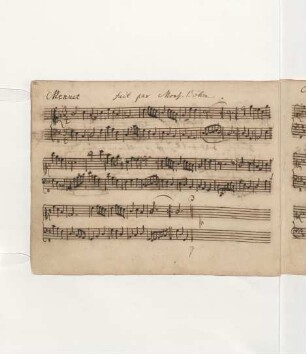 Menuet fait par Mons. Böhm.